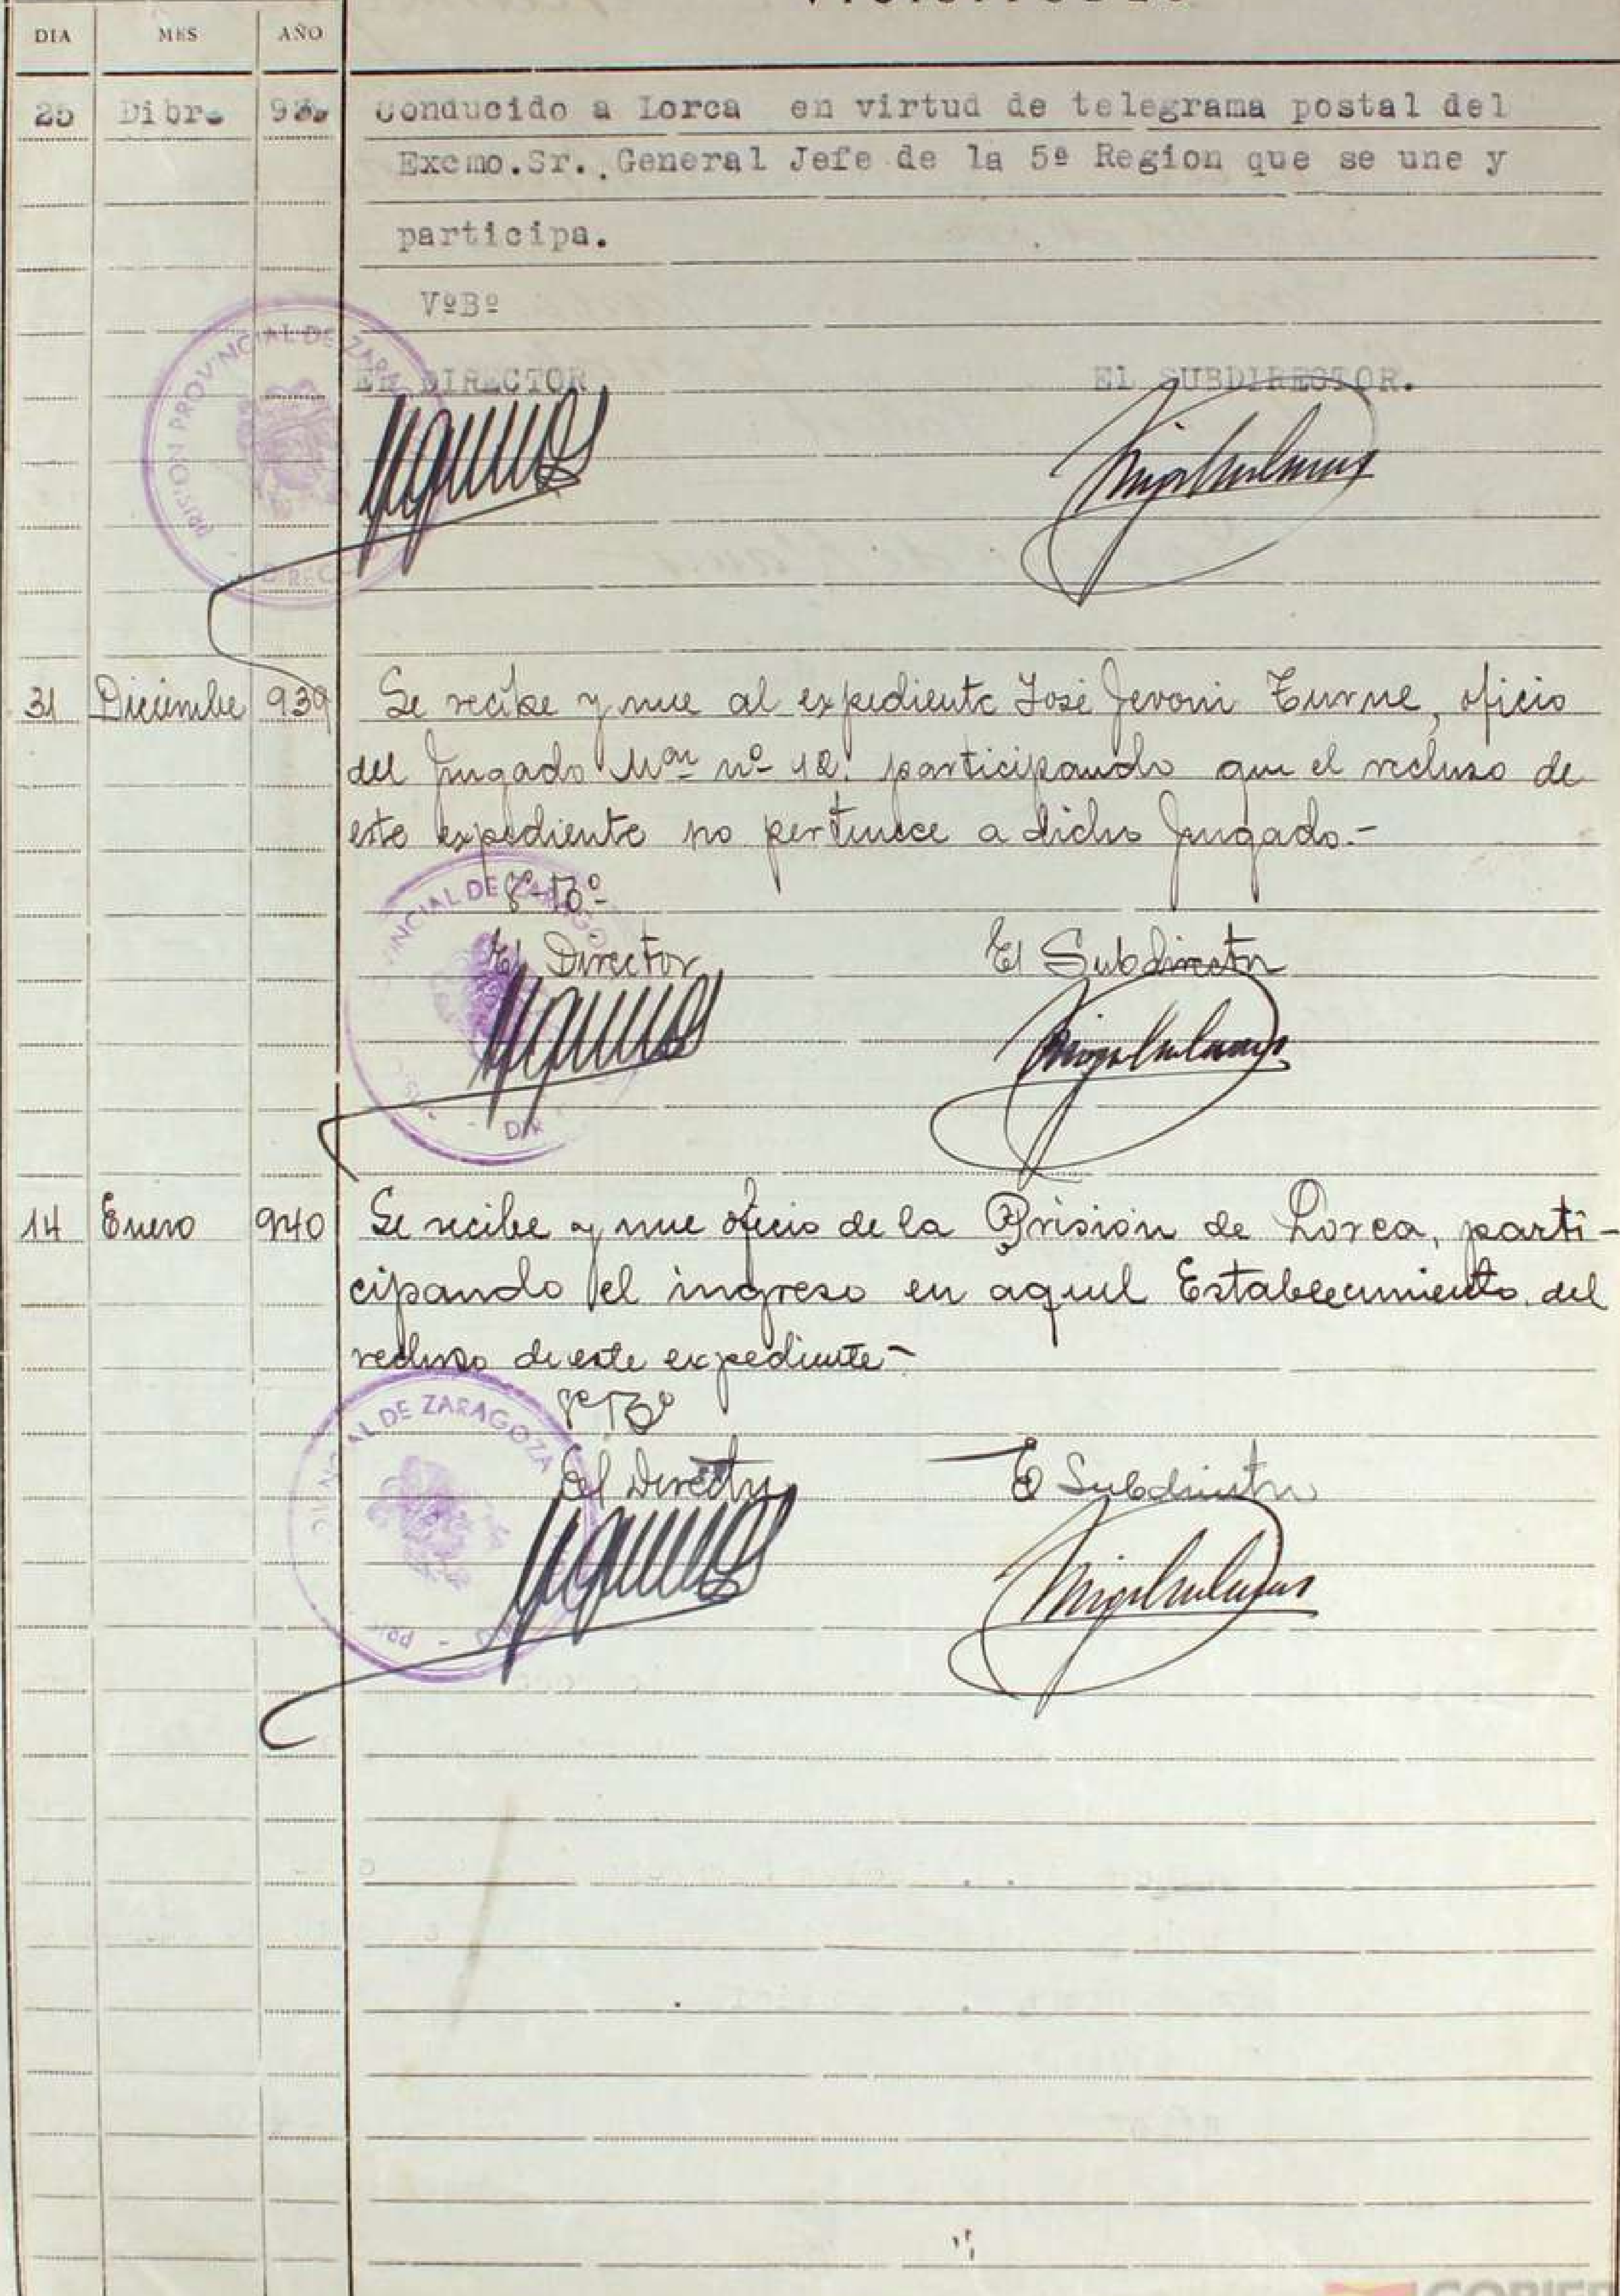 DIA MES AÑO
25 Dibre 93 Conducido a Lorca en virtud de telegrama postal del
Excmo.Sr. General Jefe de la 5ª Region que se une y
participa.
VºBº
EL DIRECTOR El SUBDIRECTOR.
PRISION PROVINCIAL DE ZARA
31 Diciembre 939 Se recibe y une al expediente José Jevoni Turne, oficio
del Juzgado Mar nº 12. participando que el recluso de
este expediente no pertenece a dicho Juzgado.-
Vº-Bº
El Director El Subdirector
NCIAL DE ZARAGO
14 Enero 940 Se recibe y une oficio de la Prisión de Lorca, parti-
cipando el ingreso en aquel Establecimiento del
recluso de este expediente-
Vº Bº
El Director El Subdirector
AL DE ZARAGOZA
GOBIER